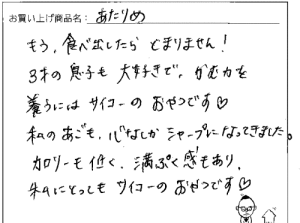 お買い上げ商品名: あたりめ
もう、食べ出したら とまりません!
3才の息子も 大好きで、かむ力を
養うには サイコーの おやつです♡
私のあごも、心なしか シャープになってきました。
カロリーも低く、満ぷく感もあり、
私にとっても サイコーの おやつです♡